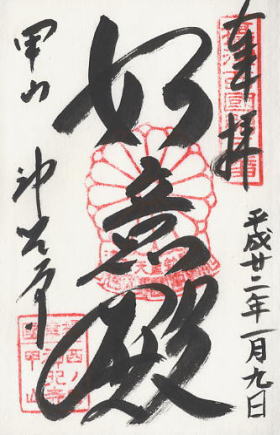 奉拝
平成廿二年一月九日
如意殿
甲山 神呪寺